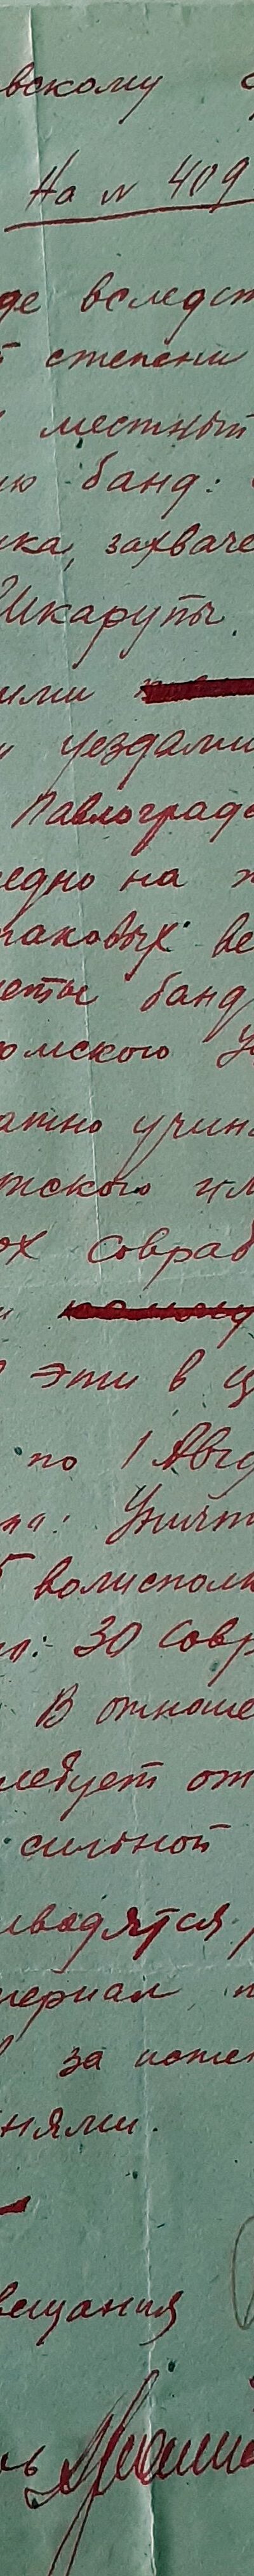 вскому
На № 409
де вследст
степени
местный
ю банд:
ка, захваче
Шкарупы.
ими
уездами
Павлоградс
едно на
таковых ве
банд
омского у
атно учин
тского им
ох совраб
и
эти в ц
по 1 Авгу
Уничт
волисполк
30 совр
В отноше
ледует от
сильной
водятся
териал п
за исте
нями.
вещания
ь